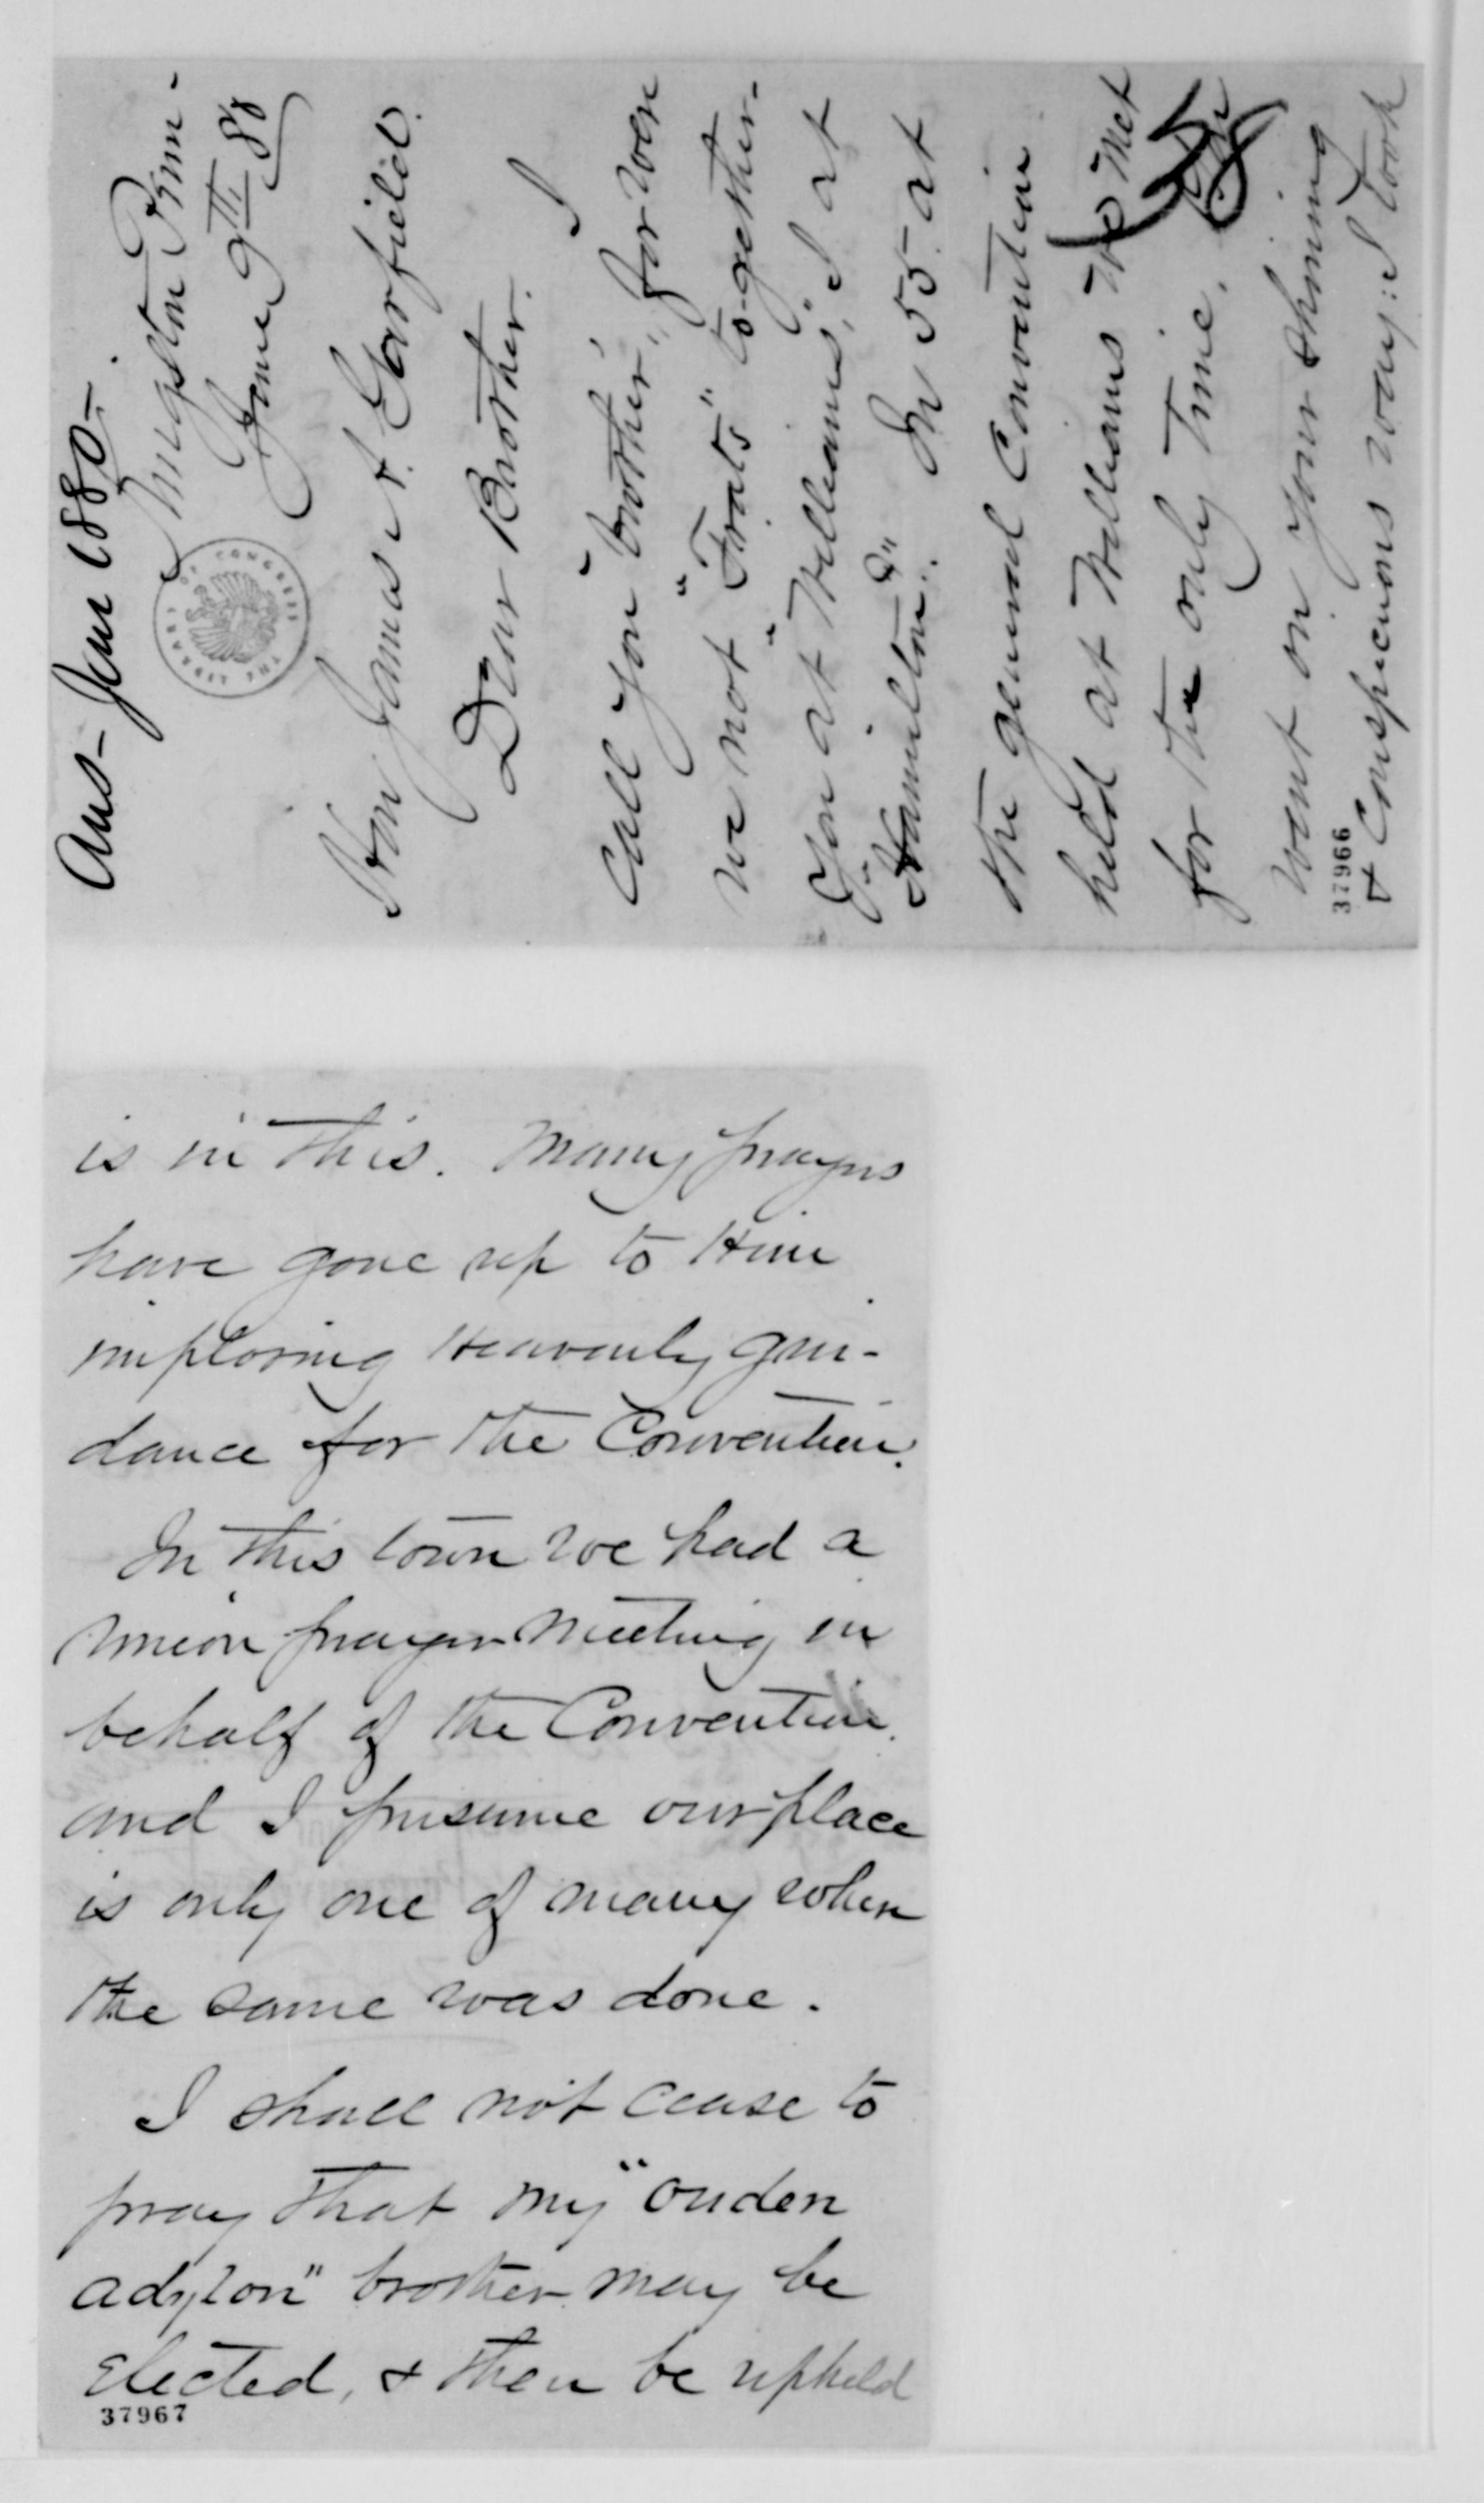 Ans- Jun 1880-
Kingston Penn-
June 9th 80
THE LIBRARY OF CONGRESS
Hon James A. Garfield.
Dear Brother. I
call you "brother," for were
we not "Frats" together-
You at "Williams," I at
"Hamilton"? In 55 at
the general Convention
held at Williams We Met
for the only time. You
went on your shining
& Conspicuous way: I took
37966
is in this. Many prayers
have gone up to Him
imploring Heavenly gui-
dance for the Convention.
In this town we had a
union prayer meeting in
behalf of the Convention.
and I presume our place
is only one of many where
the same was done.
I shall not cease to
pray that my "ouden
adylon" brother may be
Elected, & then be upheld
37967